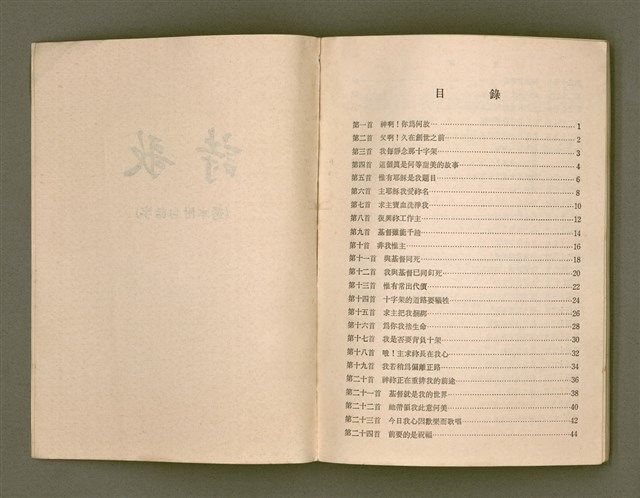 詩歌
目錄
第一首 神啊！你爲何故 1
第二首 父啊！久在創世之前 2
第三首 我每靜念那十字架 3
第四首 這個眞是何等甜美的故事 4
第五首 惟有耶穌是我題目 6
第六首 主耶穌我愛祢名 8
第七首 求主寶血洗淨我 10
第八首 我與祢工作主 12
第九首 基督雖能千迪 14
第十首 非我惟主 16
第十一首 與基督同死 18
第十二首 我與基督已同釘死 20
第十三首 惟有常出代價 22
第十四首 十字架的道路要犧牲 24
第十五首 求主把我捆綁 26
第十六首 爲你我捨生命 28
第十七首 我是否要背負十架 30
第十八首 哦！主求祢長在我心 32
第十九首 我若稍爲偏離正路 34
第二十首 神祢正在重排我的前途 36
第二十一首 基督就是我的世界 38
第二十二首 祂帶領我此意何美 40
第二十三首 今日我心因歡樂而歌唱 42
第二十四首 前要的是祝福 44